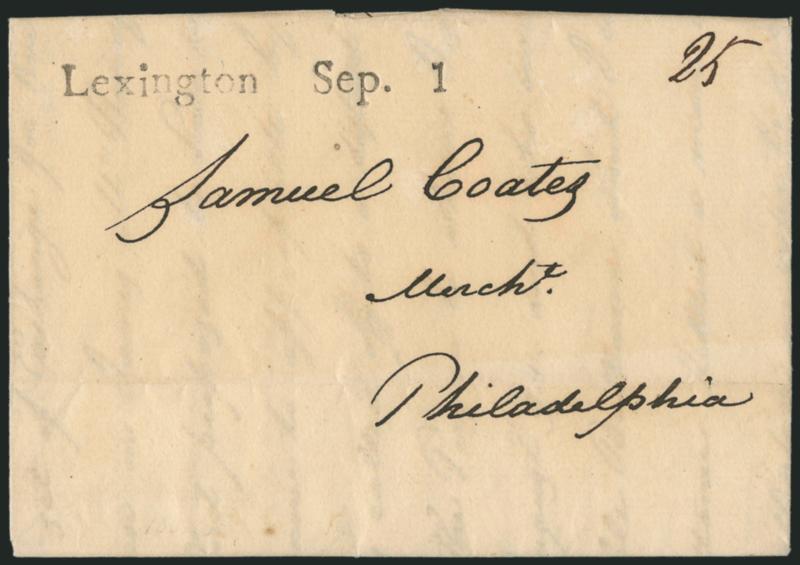 Lexington Sep. 1
25
Samuel Coates
Mercht.
Philadelphia